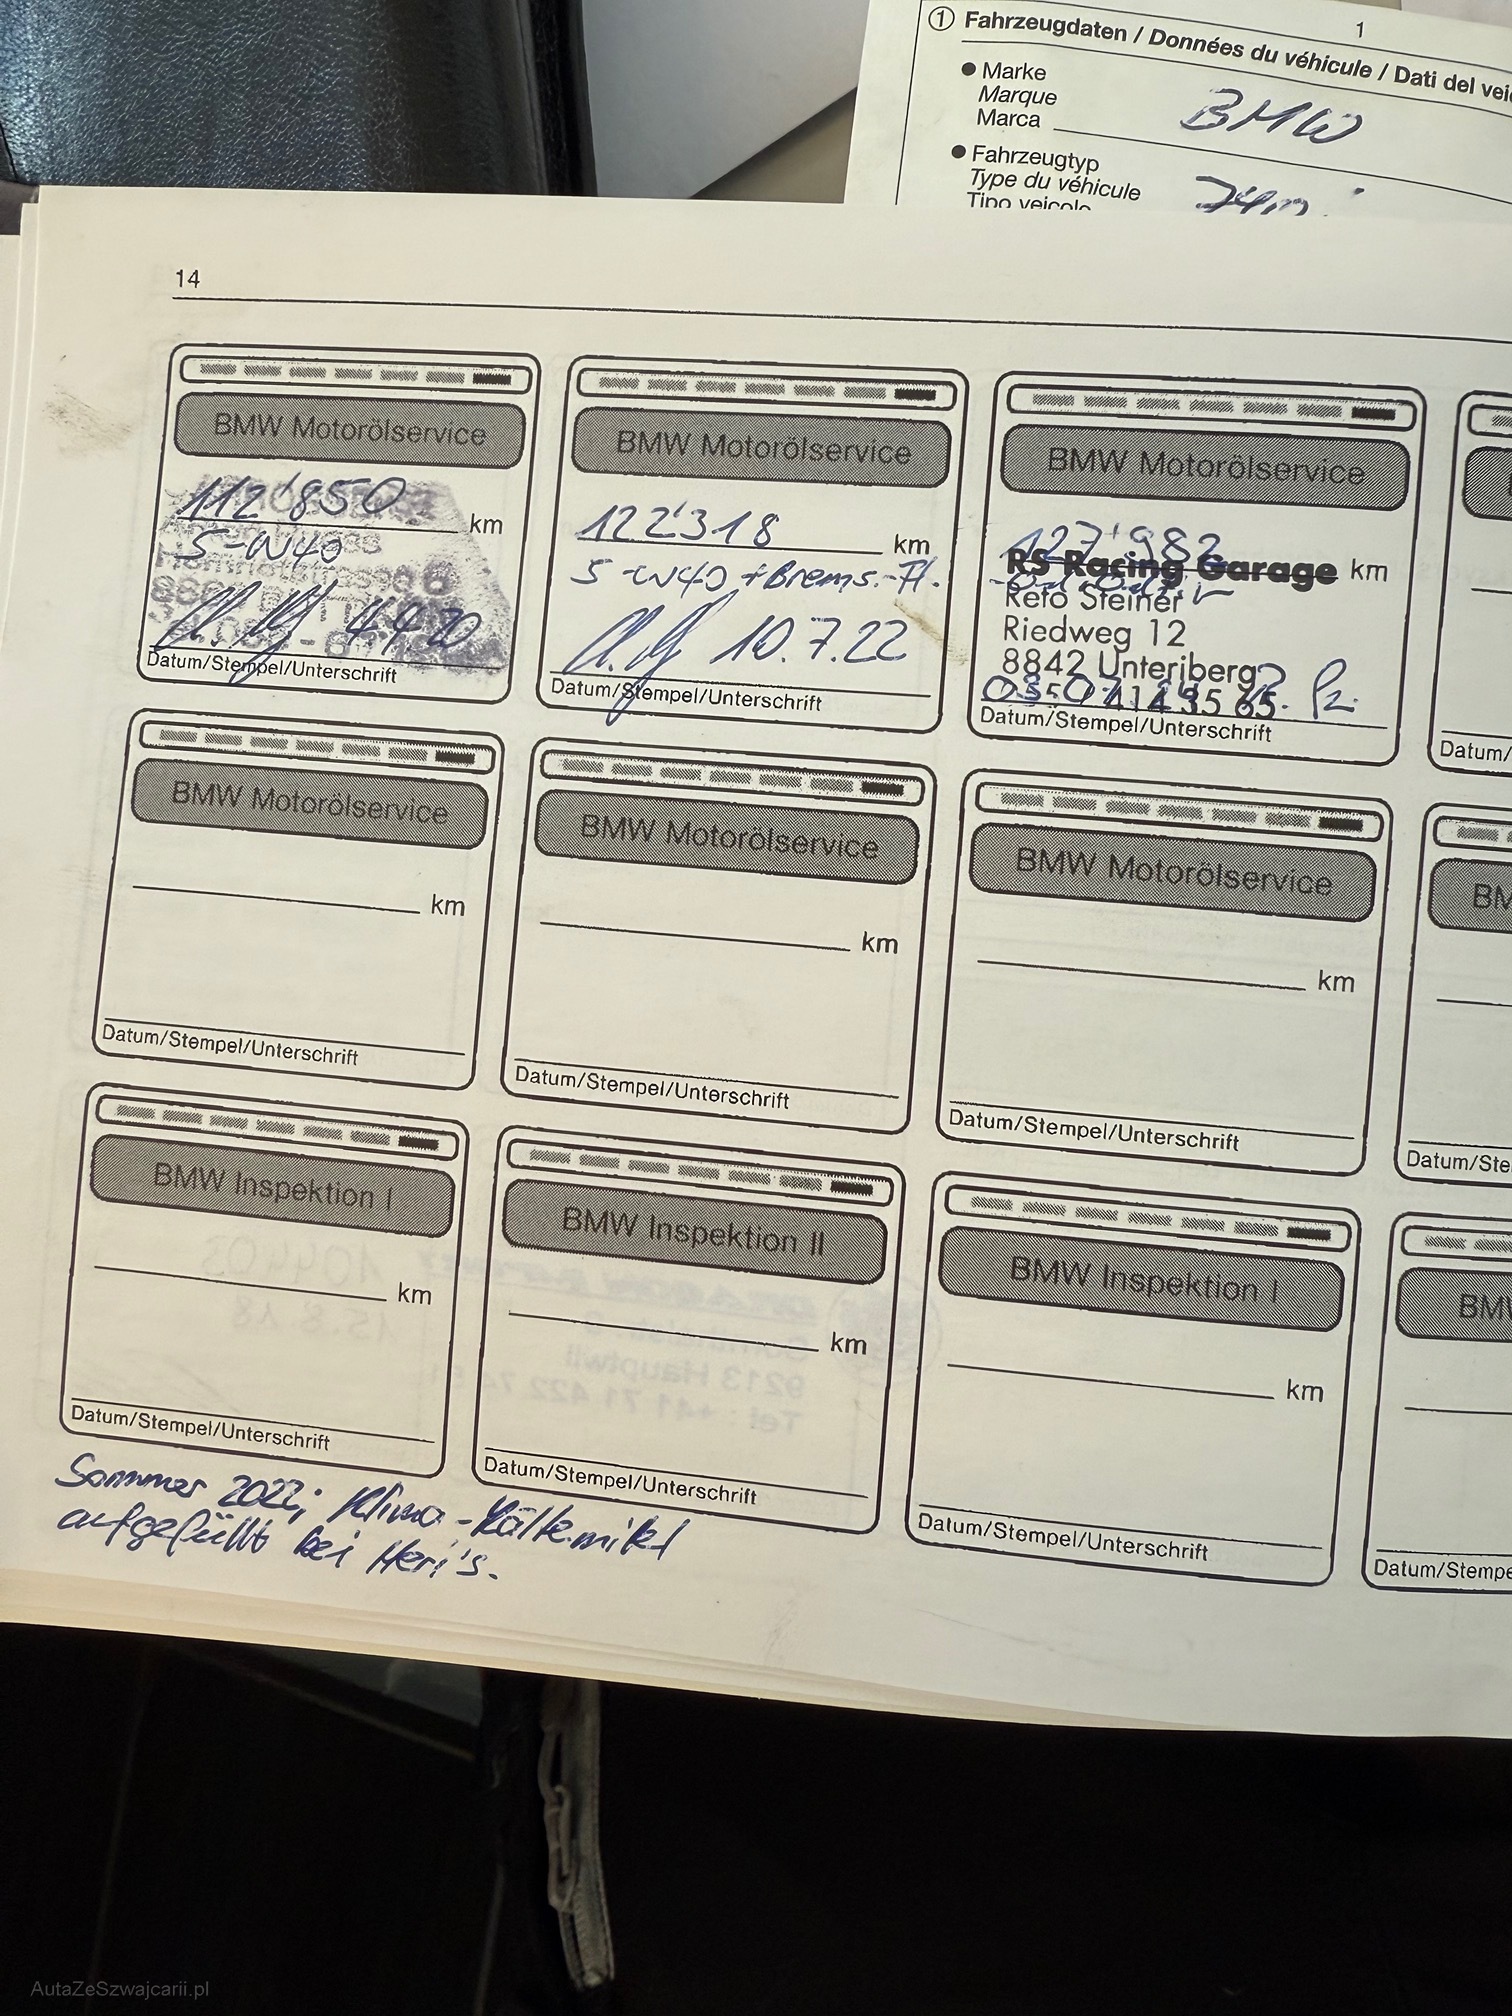 1
① Fahrzeugdaten / Données du véhicule / Dati del vei
● Marke
Marque
Marca
BMW
● Fahrzeugtyp
Type du véhicule
Tipo veicolo
14
BMW Motorölservice
112'850 km
5-W40
4.4.20
Datum/Stempel/Unterschrift
BMW Motorölservice
122'318 km
5-W40 + Brems.-Fl.
10.7.22
Datum/Stempel/Unterschrift
BMW Motorölservice
127'982 km
RS Racing Garage
Reto Steiner
Riedweg 12
8842 Unteriberg
Datum/Stempel/Unterschrift
Datum/
BMW Motorölservice
km
Datum/Stempel/Unterschrift
BMW Motorölservice
km
Datum/Stempel/Unterschrift
BMW Motorölservice
km
Datum/Stempel/Unterschrift
BM
Datum/Ste
BMW Inspektion I
km
Datum/Stempel/Unterschrift
BMW Inspektion II
km
Datum/Stempel/Unterschrift
BMW Inspektion I
km
Datum/Stempel/Unterschrift
BM
Datum/Stempe
Sommer 2022; Klima-Kältemittel
aufgefüllt bei Heri's.
AutaZeSzwajcarii.pl